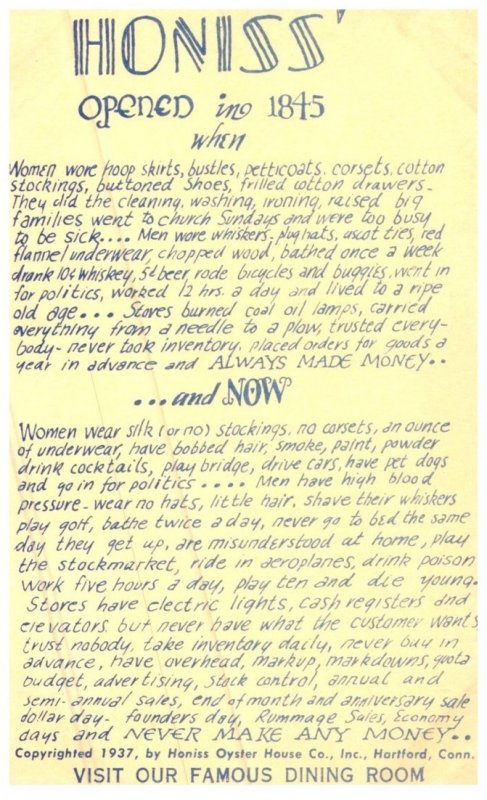 HONISS'
OPENED in 1845
when
Women wore hoop skirts, bustles, petticoats, corsets, cotton
stockings, buttoned shoes, frilled cotton drawers-
They did the cleaning, washing, ironing, raised big
families went to church Sundays and were too busy
to be sick.... Men wore whiskers, plug hats, ascot ties, red
flannel underwear, chopped wood, bathed once a week
drank 10¢ whiskey, 5¢ beer, rode bicycles and buggies, went in
for politics, worked 12 hrs. a day and lived to a ripe
old age... Stores burned coal oil lamps, carried
everything from a needle to a plow, trusted every-
body- never took inventory, placed orders for goods a
year in advance and ALWAYS MADE MONEY..
...and NOW
Women wear silk (or no) stockings, no corsets, an ounce
of underwear, have bobbed hair, smoke, paint, powder
drink cocktails, play bridge, drive cars, have pet dogs
and go in for politics.... Men have high blood
pressure- wear no hats, little hair, shave their whiskers
play golf, bathe twice a day, never go to bed the same
day they get up, are misunderstood at home, play
the stockmarket, ride in aeroplanes, drink poison
work five hours a day, play ten and die young.
Stores have electric lights, cash registers and
elevators but never have what the customer wants
trust nobody, take inventory daily, never buy in
advance, have overhead, markup, markdowns, quota
budget, advertising, stock control, annual and
semi-annual sales, end of month and anniversary sale
dollar day- founders day, Rummage Sales, Economy
days and NEVER MAKE ANY MONEY..
Copyrighted 1937, by Honiss Oyster House Co., Inc., Hartford, Conn.
VISIT OUR FAMOUS DINING ROOM